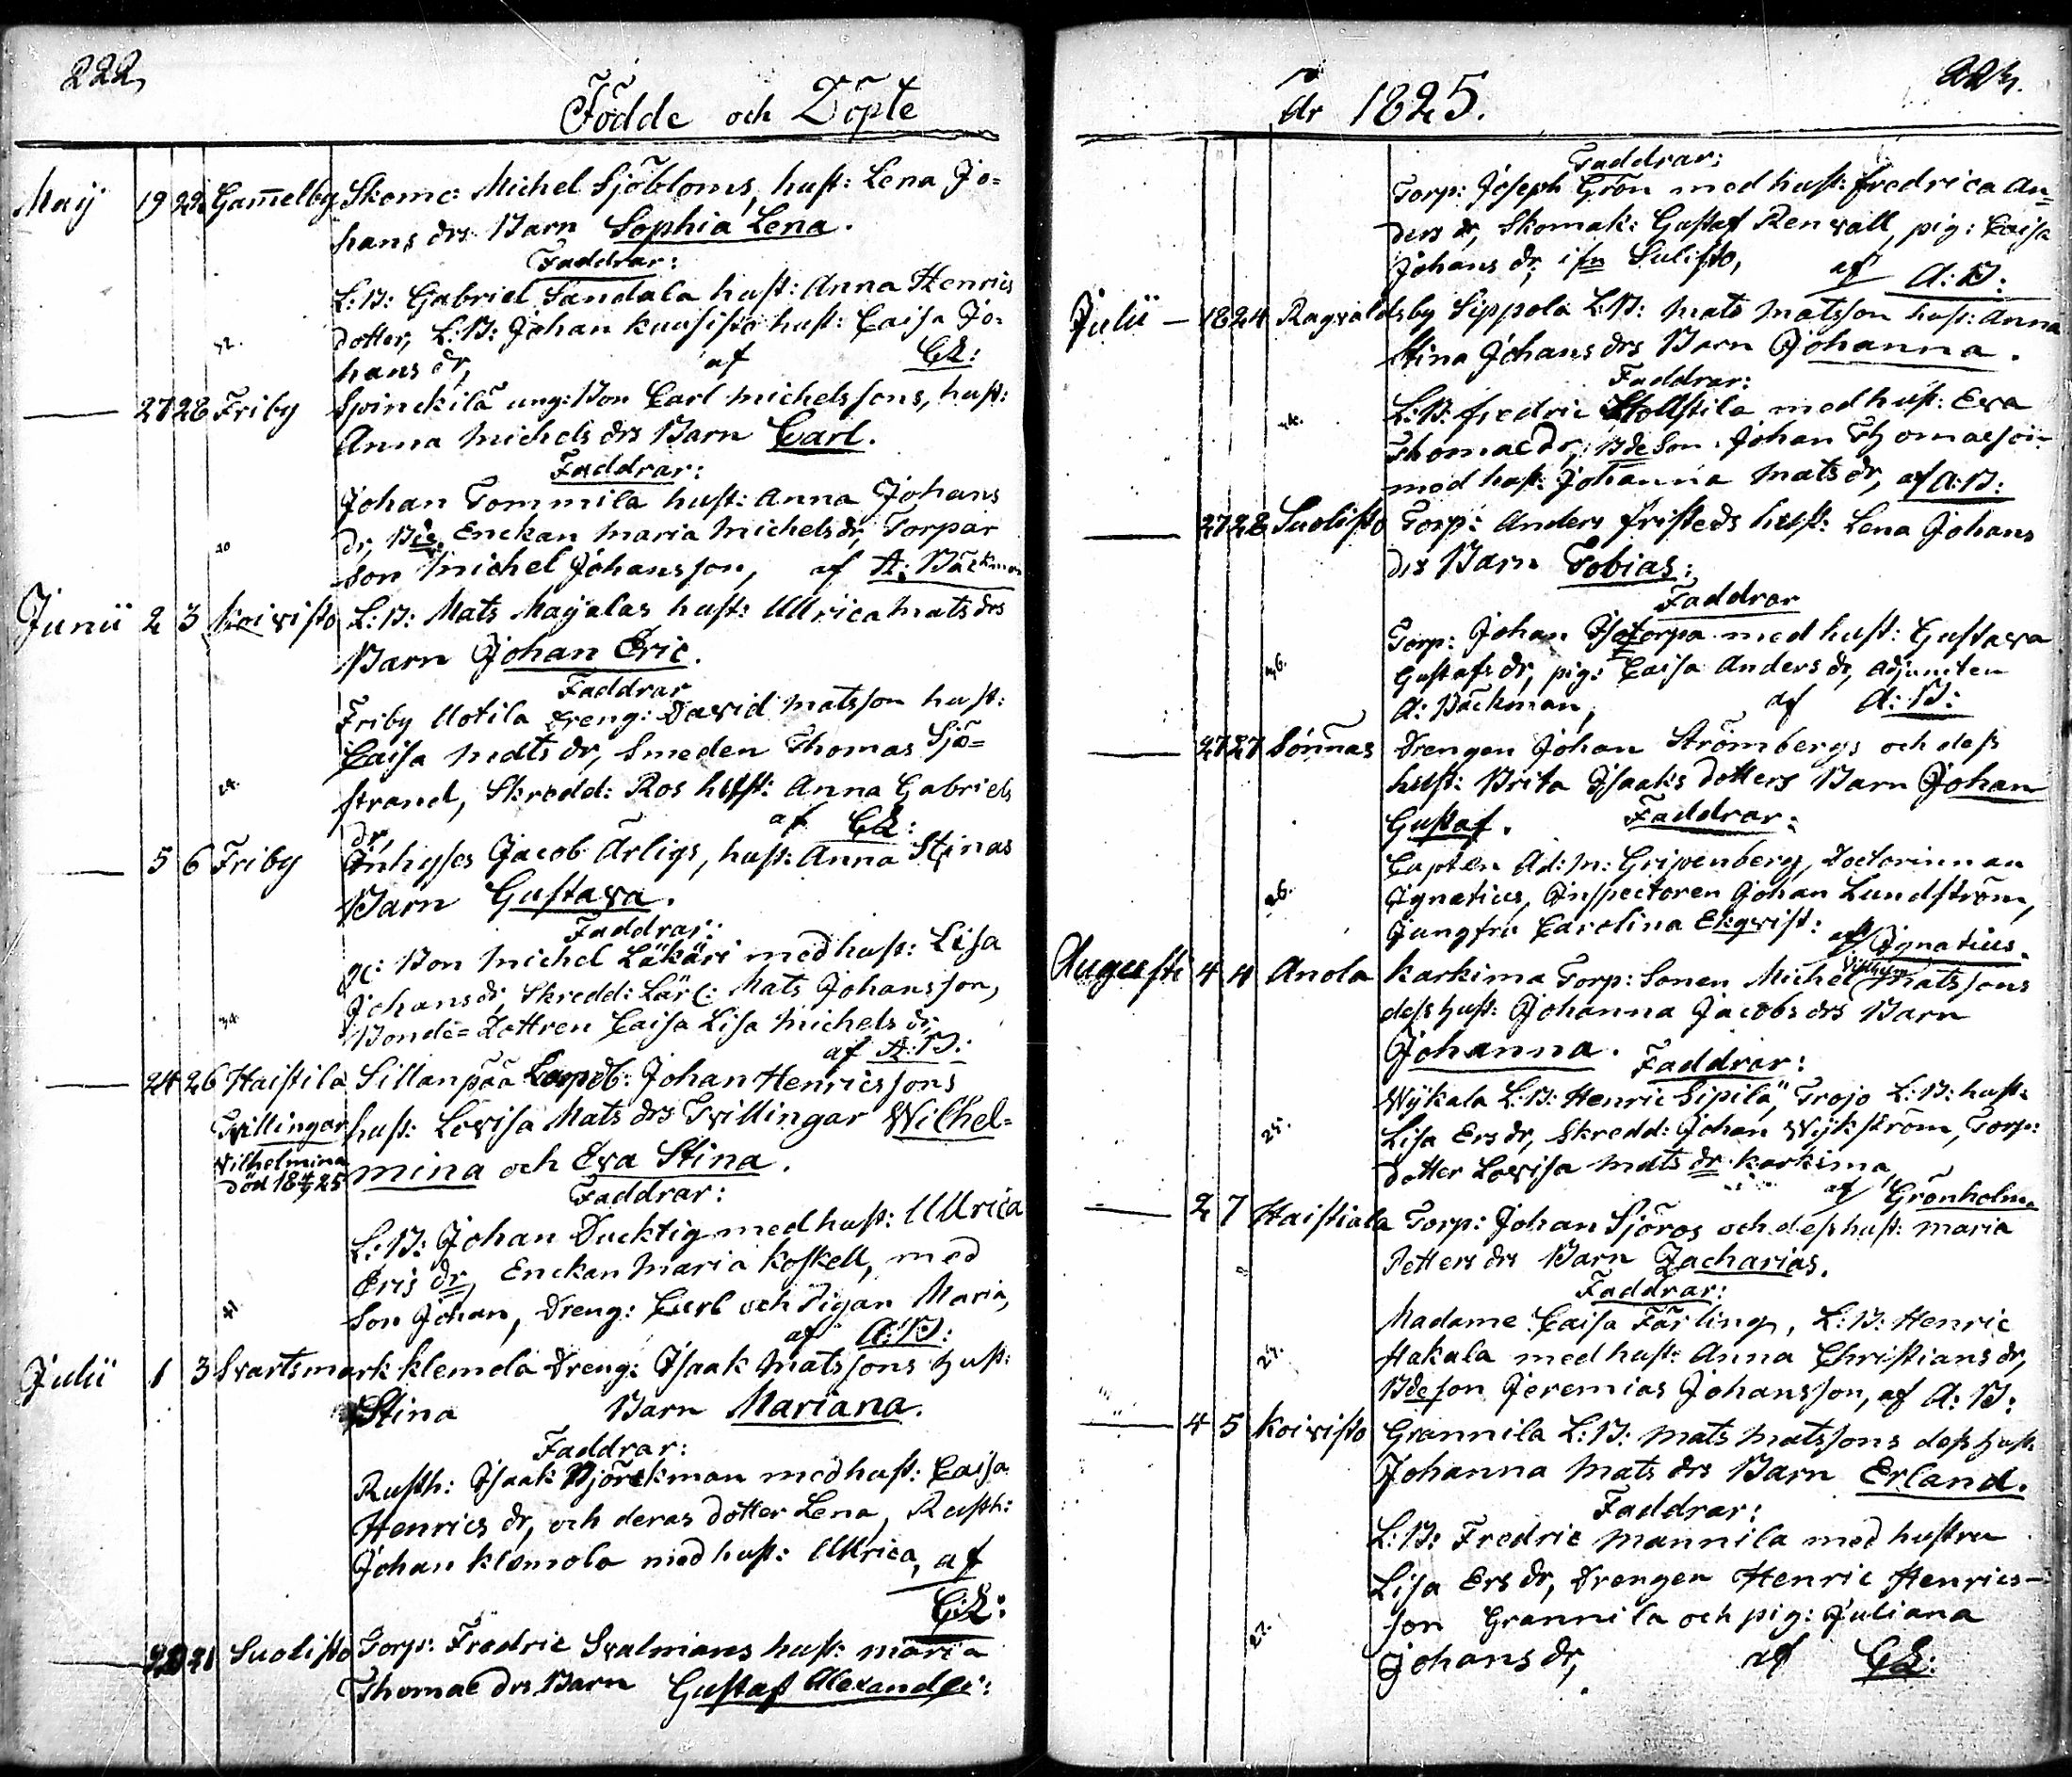 222,
Födde och Döpte
Maij 19 22 Gam̄elby Skom: Michel Sjöbloms, hust: Lena Jo=
hans drs Barn Sophia Lena.
Faddrar:
L:B: Gabriel Sandala hust: Anna Henrics
dotter, L:B: Johan Kausisto hust: Caisa Jo-
32. hans dr, af CE:
— 27 28 Friby Spinckilä ung: Bon Carl Michelssons, hust:
Anna Michels drs Barn Carl.
Faddrar:
Johan Tommila hust: Anna Johans
dr, Bde Enckan Maria Michels dr, Torpar
20 son Michel Johansson, af A: Bäckman
Junii 2 3 Koivisto L:B: Mats Majalas hust: Ullrica Mats drs
Barn Johan Eric.
Faddrar
Friby Uotila Dreng: David Matsson hust:
Caisa Mats dr, Smeden Thomas Sjö=
24. strand, Skredd: Ros hust: Anna Gabriels
dr, af CE:
— 5 6 Friby Inhyses Jacob Ärligs, hust: Anna Stinas
Barn Gustava.
Faddrar:
Bon Michel Läkäri med hust: Lisa
Johans dr, Skredd: Lärl: Mats Johansson,
34. Bonde=Dottren Caisa Lisa Michels dr,
af A:B:
— 24 26 Haistila Sillanpää Johan Henricssons
Tvillingar hust: Lovisa Mats drs Tvillingar Wilhel=
Wilhelmina mina och Eva Stina.
död 18 4/9 25
Faddrar:
L:B: Johan Ducktig med hust: Ullrica
Eris dr, Enckan Maria Koskell, med
41 Son Johan, Dreng: Carl och Pigan Maria,
af A:B:
Julii 1 3 Svartsmark Klemola Dreng: Isaak Matssons hust:
Stina Barn Mariana.
Faddrar:
Rusth: Isaak Björckman med hust: Caisa
Henrics dr, och deras dotter Lena, Rusth:
Johan Klemola med hust: Ullrica, af
CE:
— 20 21 Suolisto Torp: Fredric Svalmans hust: Maria
Thomae drs Barn Gustaf Alexander:
År 1825.
223.
Faddrar:
Torp: Joseph Grön med hust: Fredrica An=
ders dr, Skomak: Gustaf Renvall, pig: Caisa
Johans dr, ifrn Sulisto, af A:B:
Julii — 18 24 Ragvaldsby Sippola L:B: Mats Matsson hust: Anna
Stina Johans drs Barn Johanna.
Faddrar:
L:B: Fredric Stollstila med hust: Eva
Thomae dr, Bde Son Johan Thomaeson
med hust: Johanna Mats dr, af A:B:
— 27 28 Suolisto Torp: Anders Fristeds hust: Lena Johans
drs Barn Tobias:
Faddrar
Torp: Johan Isotorpa med hust: Gustava
36. Gustafs dr, pig: Caisa Anders dr, Adjuncten
A: Bäckman, af A:B:
— 27 27 Sönnäs Drengen Johan Strömbergs och dess
hust: Brita Isaaks dotters Barn Johan
Gustaf. Faddrar:
Capten Ad: M: Gripenberg, Doctorinnan
26. Ignatius, Inspectoren Johan Lundström,
Jungfru Carolina Ekqvist: af Ignatius.
Augusti 4 4 Anola Karkima Torp: Sonen Michel Wilhelm Matssons
dess hust: Johanna Jacobs drs Barn
Johanna. Faddrar:
Wijkala L:B: Henric Sipilä, Trojo L:B: hust:
25. Lisa Ers dr, Skredd: Johan Wijkström, Torp:
dotter Lovisa Mats dr Karkima
af Grönholm
— 2 7 Haistiala Torp: Johan Sjöros och dess hust: Maria
Petters drs Barn Zacharias.
Faddrar:
Madame Caisa Färling, L:B: Henric
27. Hakala med hust: Anna Christians dr,
Bdeson Jeremias Johansson, af A:B:
— 4 5 Koivisto Grannila L:B: Mats Matssons dess hust:
Johanna Mats drs Barn Erland.
Faddrar:
L:B: Fredric Mannila med hustru
Lisa Ers dr, Drengen Henric Henrics-
27. son Grannila och pig: Juliana
Johans dr, af CE: